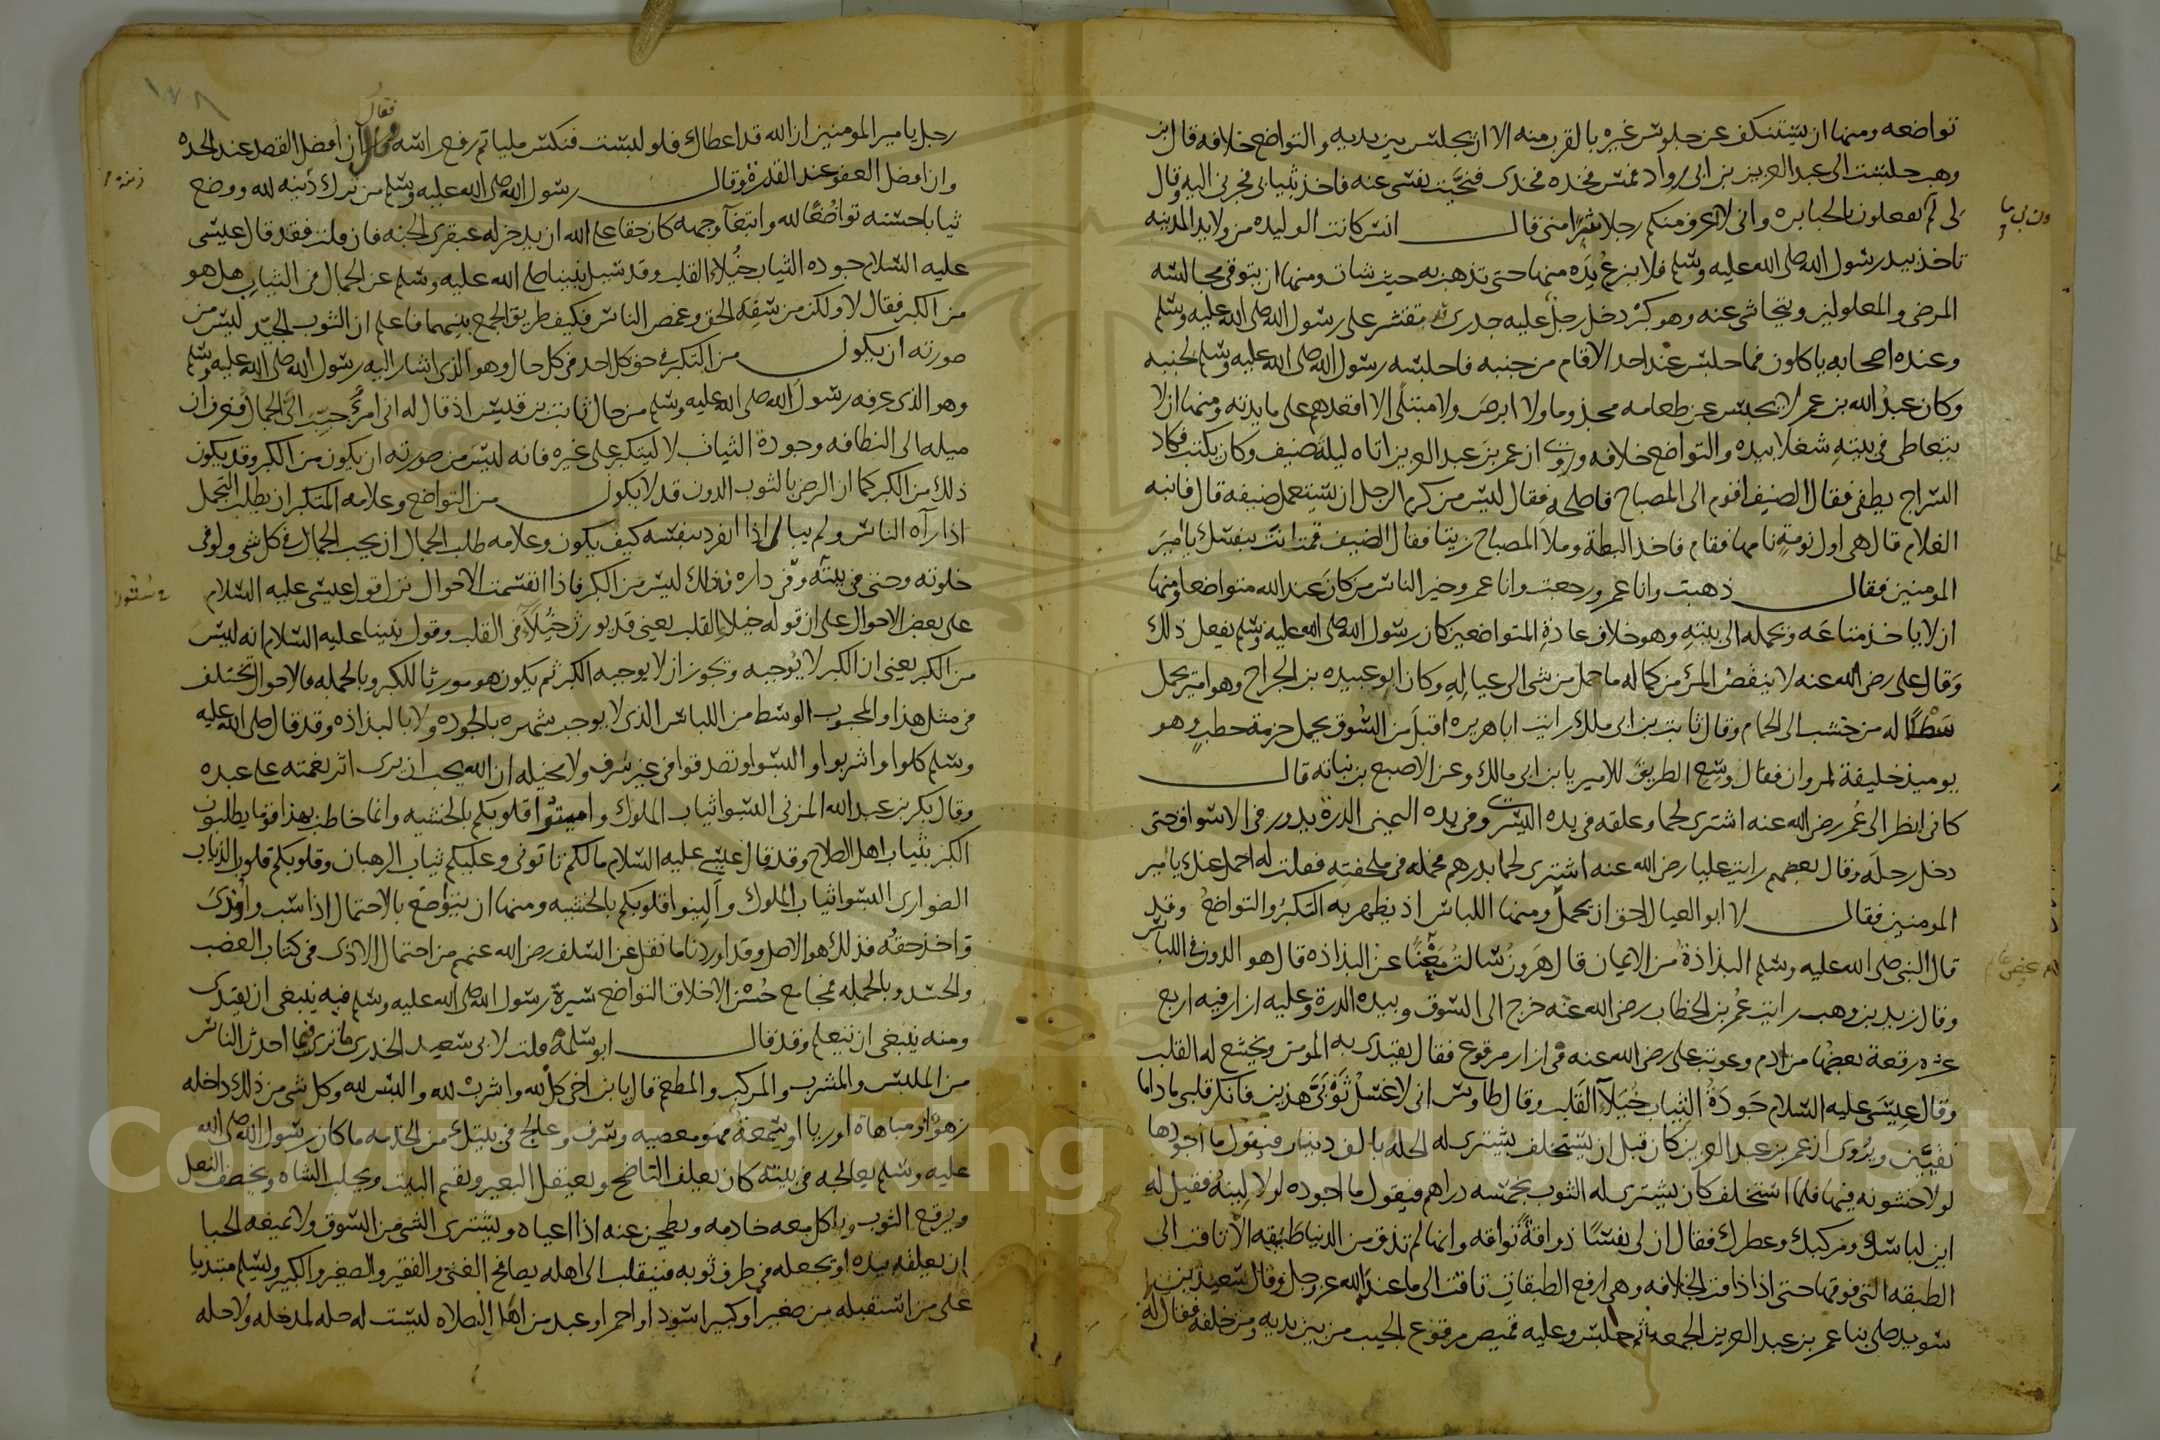 تواضعه ومنها ان يستنكف عن جلوس غيره بالقرب منه الا ان يجلس بين يديه والتواضع خلافه قال ابن
وهب جلست الى عبد العزيز بن ابى رواد فمس فخذه فخذى فنحيت نفسى عنه فاخذ ثيابى فجرنى اليه وقال
لى لم تفعلون بالجبابره وانى لا اعرف منكم رجلا شرا منى قال انس كانت الوليده من ولايد المدينه
تاخذ بيد رسول الله صلى الله عليه وسلم فلا ينزع يده منها حتى تذهب به حيث شات ومنها ان يتوقى مجالسه
المرضى والمعلولين ويتحاشى عنه وهو كبر دخل رجل عليه جدرى قد تقشر على رسول الله صلى الله عليه وسلم
وعنده اصحابه ياكلون فما جلس عند احد الا قام من جنبه فاجلسه رسول الله صلى الله عليه وسلم لجنبه
وكان عبد الله بن عمر لا يحبس عن طعامه مجذوما ولا ابرص ولا مبتلى الا اقعدهم على مايدته ومنها ان لا
يتعاطى فى بيته شغلا بيده والتواضع خلافه وروى ان عمر بن عبد العزيز اتاه ليلة ضيف وكان يكتب فكاد
السراج يطفى فقال الضيف اقوم الى المصباح فاصلحه فقال ليس من كرم الرجل ان يستعمل ضيفه قال فانبه
الغلام قال هى اول نومة نامها فقام فاخذ البطة وملا المصباح زيتا فقال الضيف قمت انت بنفسك يا امير
المومنين فقال ذهبت وانا عمر ورجعت وانا عمر وخير الناس من كان عند الله متواضعا ومنها
ان لا ياخذ متاعه ويحمله الى بيته وهو خلاف عادة المتواضعين كان رسول الله صلى الله عليه وسلم يفعل ذلك
وقال على رضى الله عنه لا ينقص المرء من كماله ما حمل من شى الى عياله وكان ابو عبيده بن الجراح وهو امير يحمل
سطلا له من خشب الى الحمام وقال ثابت بن ابى ملك رايت ابا هريره اقبل من السوق يحمل حزمة حطب وهو
يوميذ خليفة لمروان فقال وسع الطريق للامير يا بن ابى مالك وعن الاصبع بن نباته قال
كانى انظر الى عمر رضى الله عنه اشترى لحما وعلقه فى يده اليسرى وفى يده اليمنى الدرة يدور فى الاسواق حتى
دخل رحله وقال بعضهم رايت عليا رضى الله عنه اشترى لحما بدرهم فحمله فى ملحفته فقلت له احمل عنك يا امير
المومنين فقال لا ابو العيال احق ان يحمل ومنها اللباس اذ يظهر به التكبر والتواضع وقد
قال النبى صلى الله عليه وسلم البذاذة من الايمان قال هرون سالت معنا عن البذاذه قال هو الدون فى اللباس
وقال زيد بن وهب رايت عمر بن الخطاب رضى الله عنه خرج الى السوق وبيده الدرة وعليه ازار فيه اربع
عشره رقعة بعضها من ادم وعوتب على رضى الله عنه فى ازار مرقوع فقال يقتدى به المومن ويخشع له القلب
وقال عيسى عليه السلام جودة الثياب خيلاء القلب وقال طاوس انى لاغسل ثوبى هذين فانكر قلبى ما داما
نقيين ويروى ان عمر بن عبد العزيز كان قبل ان يستخلف يشترى له الحله بالف دينار فيقول ما اجودها
لولا خشونه فيها فلما استخلف كان يشترى له الثوب بخمسه دراهم فيقول ما اجوده لولا لينه فقيل له
اين لباسك ومركبك وعطرك فقال ان لى نفسا ذواقة تواقه وانها لم تذق من الدنيا طبقه الا تاقت الى
الطبقه التى فوقها حتى اذا ذاقت الخلافه وهى ارفع الطبقات تاقت الى ما عند الله عز وجل وقال سعيد بن
سويد صلى بنا عمر بن عبد العزيز الجمعة ثم جلس وعليه قميص مرقوع الجيب من بين يديه ومن خلفه فقال له
١٧٨
فقال
رجل يا امير المومنين ان الله قد اعطاك فلو لبست فنكس مليا ثم رفع راسه ان افضل القصد عند الجده
وان افضل العفو عند القدرة وقال رسول الله صلى الله عليه وسلم من ترك زينه لله ووضع
ثيابا حسنه تواضعا لله وابتغآ وجهه كان حقا على الله ان يدخر له عبقرى الجنه فان قلت فقد قال عيسى
عليه السلام جوده الثياب خيلاء القلب وقد سيل نبينا صلى الله عليه وسلم عن الجمال فى الثياب هل هو
من الكبر فقال لا ولكن من سفه الحق وغمص الناس فكيف طريق الجمع بينهما فاعلم ان الثوب الجيد ليس من
صورته ان يكون من التكبر فى حق كل احد فى كل حال وهو الذى اشار اليه رسول الله صلى الله عليه وسلم
وهو الذى عرفه رسول الله صلى الله عليه وسلم من حال ثابت بن قيس اذ قال له انى امرؤ حبب الى الجمال فعرف ان
ميله الى النظافه وجودة الثياب لا ليتكبر على غيره فانه ليس من صورته ان يكون من الكبر وقد يكون
ذلك من الكبر كما ان الرضى بالثوب الدون قد لا يكون من التواضع وعلامه المتكبر ان يطلب التجمل
اذا رآه الناس ولم يبال اذا انفرد بنفسه كيف يكون وعلامه طلب الجمال ان يحب الجمال فى كل شى ولو فى
خلوته وحتى فى بيته وفى داره فذلك ليس من الكبر فاذا انقسمت الاحوال نزل قول عيسى عليه السلام
على بعض الاحوال على ان قوله خيلاء القلب يعنى قد يورث خيلاء فى القلب وقول نبينا عليه السلام انه ليس
من الكبر يعنى ان الكبر لا يوجبه ويجوز ان لا يوجبه الكبر ثم يكون هو مورثا للكبر وبالجمله فالاحوال تختلف
فى مثل هذا والمحبوب الوسط من اللباس الذى لا يوجب شهره بالجوده ولا بالبذاذه وقد قال صلى الله عليه
وسلم كلوا واشربوا والبسوا وتصدقوا فى غير سرف ولا مخيله ان الله يحب ان يرى اثر نعمته على عبده
وقال بكر بن عبد الله المزنى البسوا ثياب الملوك واميتوا قلوبكم بالخشيه وانما خاطب بهذا قوما يطلبون
الكبر بثياب اهل الصلاح وقد قال عيسى عليه السلام ما لكم تاتونى وعليكم ثياب الرهبان وقلوبكم قلوب الذياب
الضوارى البسوا ثياب الملوك والينوا قلوبكم بالخشيه ومنها ان يتواضع بالاحتمال اذا سب واوذى
واخذ حقه فذلك هو الاصل وقد اوردنا ما نقل عن السلف رضى الله عنهم من احتمال الاذى فى كتاب الغضب
والحسد وبالجمله فمجامع حسن الاخلاق التواضع سيرة رسول الله صلى الله عليه وسلم فبه ينبغى ان يقتدى
ومنه ينبغى ان يتعلم وقد قال ابو سلمة قلت لابى سعيد الخدرى ما ترى فيما احدث الناس
من الملبس والمشرب والمركب والمطعم قال يا بن اخى كل لله واشرب لله والبس لله وكل شى من ذلك داخله
زهو او مباهاة او ريا او سمعة فهو معصيه وسرف وعالج فى بيتك من الخدمه ما كان رسول الله صلى الله
عليه وسلم يعالجه فى بيته كان يعلف الناضح ويعقل البعير ويقم البيت ويحلب الشاه ويخصف النعل
ويرقع الثوب وياكل مع خادمه ويطحن عنه اذا اعياه ويشترى الشى من السوق ولا يمنعه الحيا
ان يعلقه بيده او يجعله فى طرف ثوبه فينقلب الى اهله يصافح الغنى والفقير والصغير والكبير ويسلم مبتديا
على من استقبله من صغير او كبير اسود او احمر او عبد من اهل الصلاه ليست له حله لمدخله ولا حله